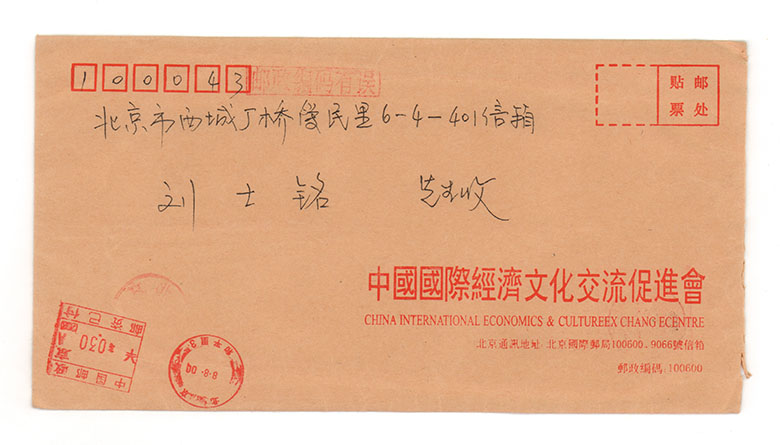 100043
邮政编码有误
贴 邮
票 处
北京市西城丁桥爱民里6-4-401信箱
刘士铭 先生收
中國國際經濟文化交流促進會
CHINA INTERNATIONAL ECONOMICS & CULTUREEX CHANG ECENTRE
北京通訊地址:北京國際郵局100600.9066號信箱
郵政編碼:100600
邮资已付
030
中国邮政